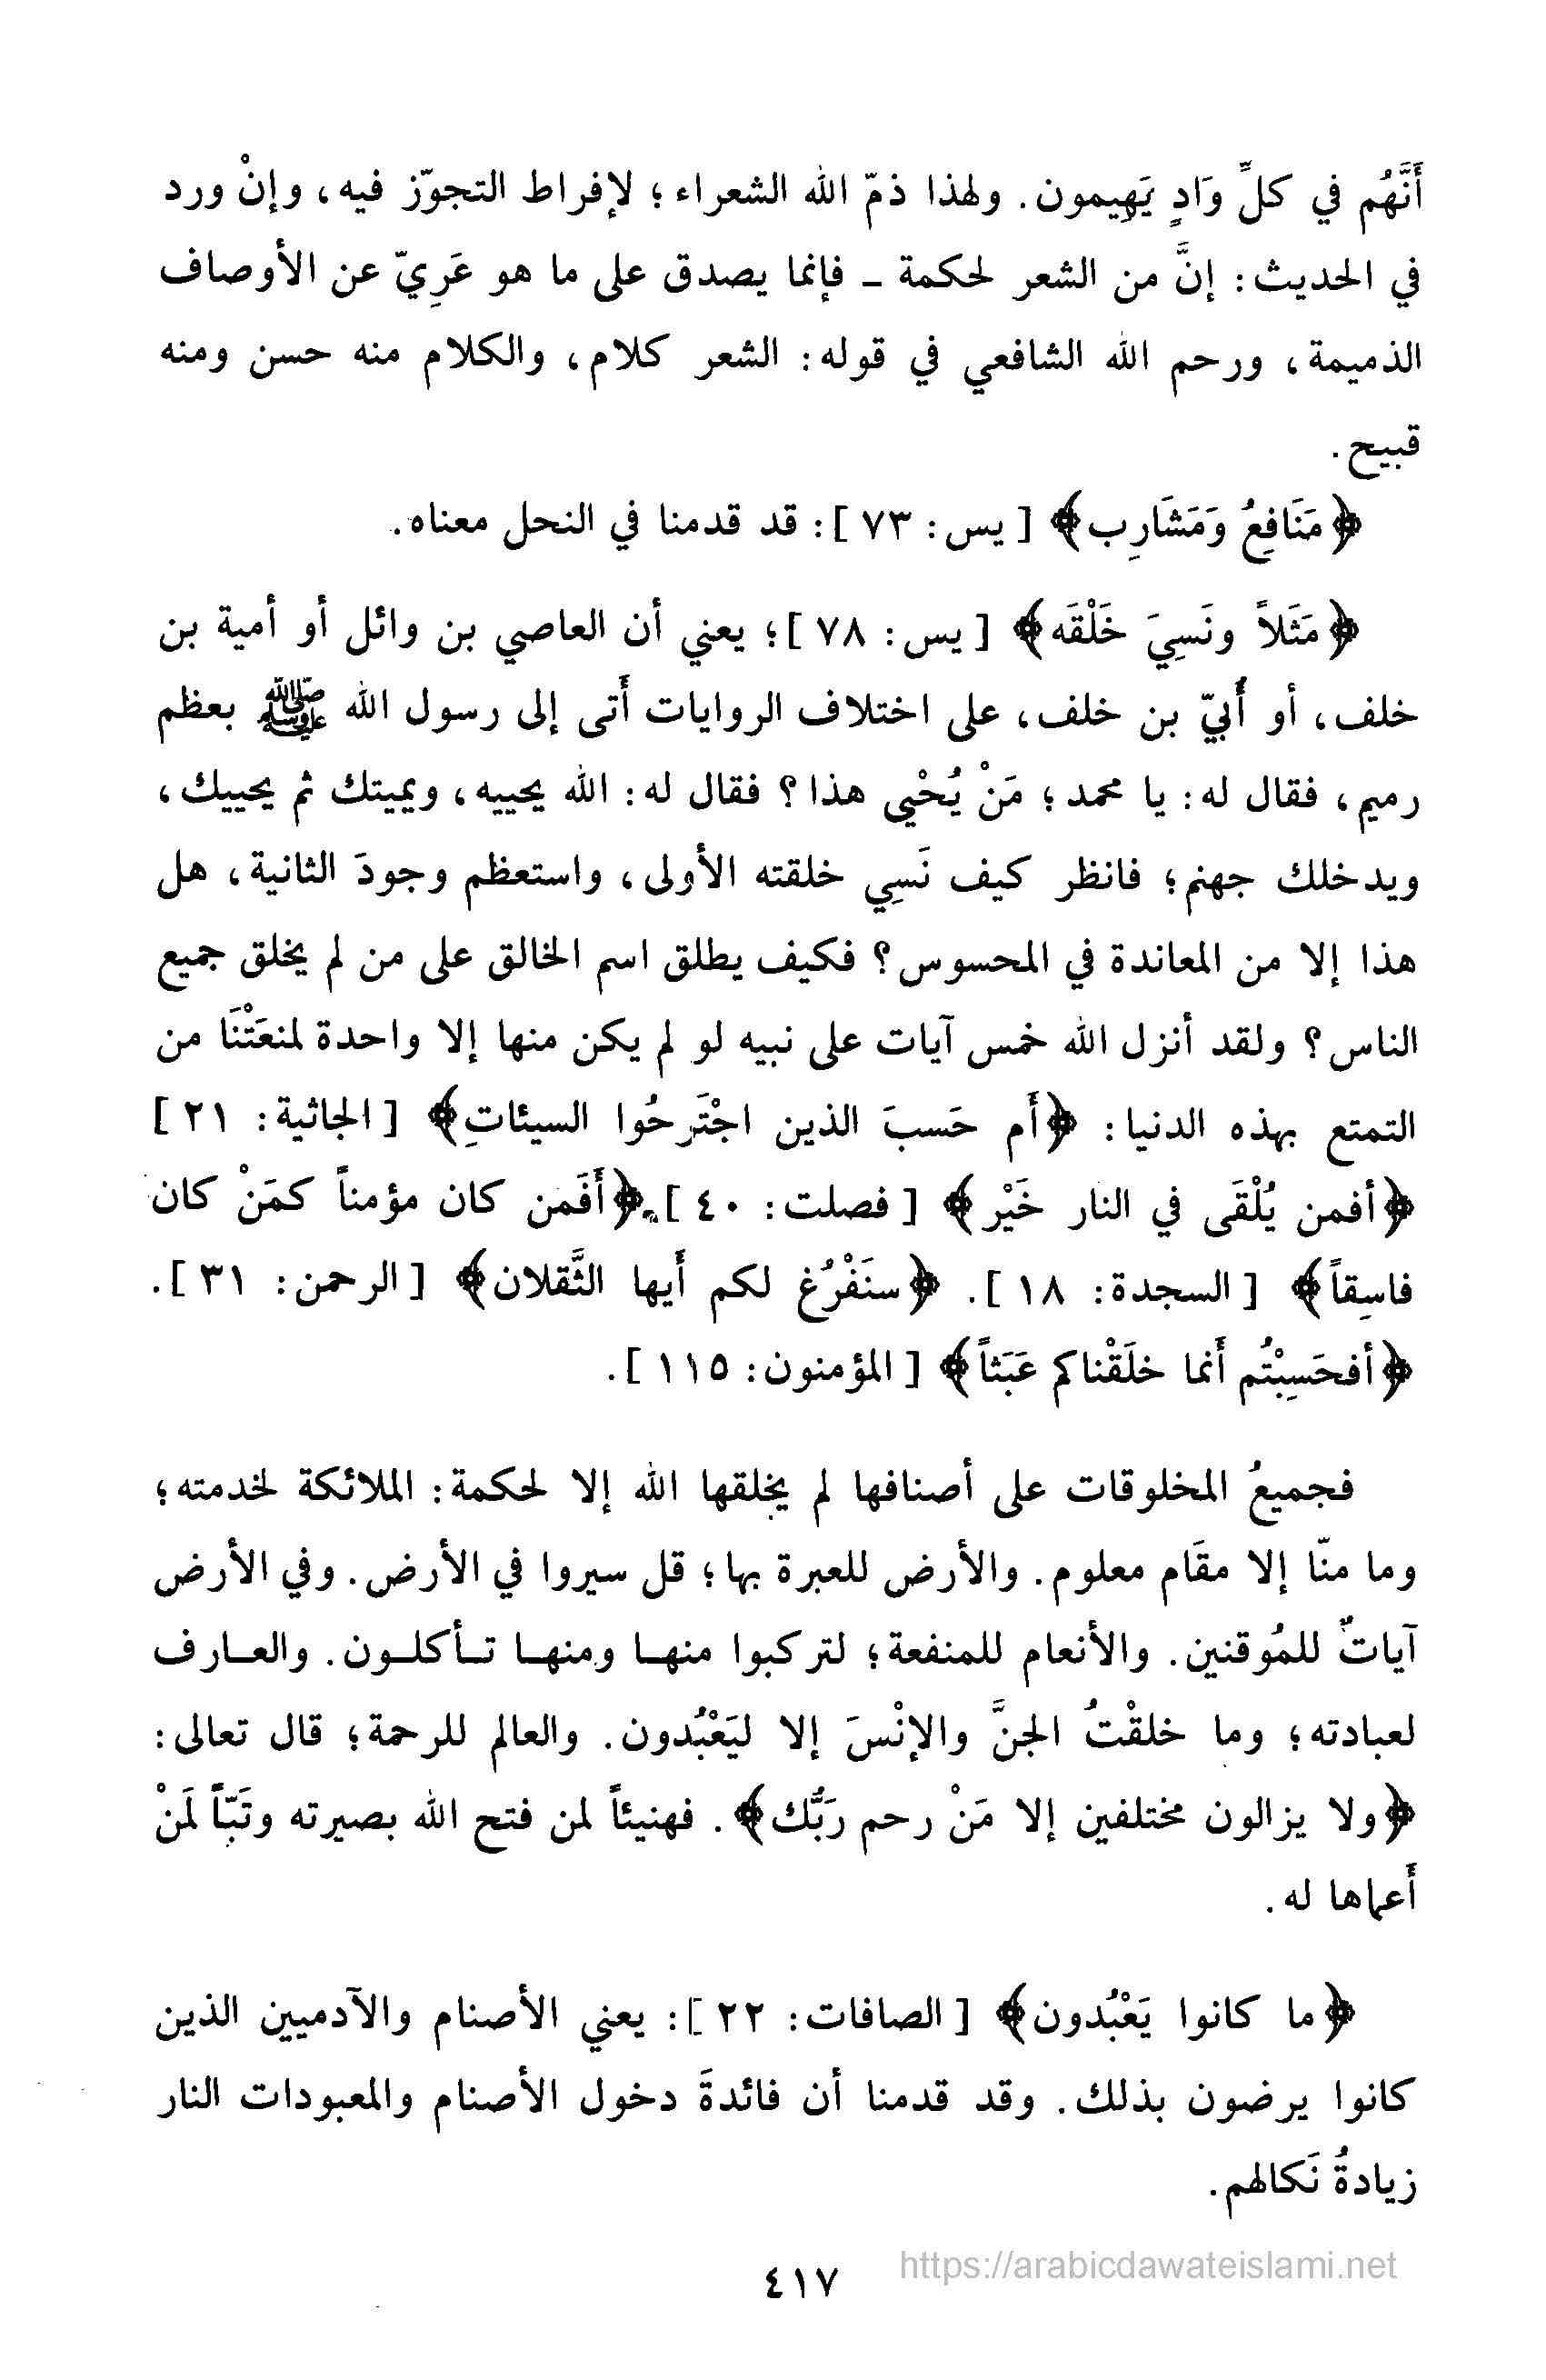 أَنَّهُم في كلِّ وَادٍ يَهِيمون. ولهذا ذمّ الله الشعراء؛ لإفراط التجوّز فيه، وإنْ ورد
في الحديث: إنَّ من الشعر لحكمة - فإنما يصدق على ما هو عَرِيّ عن الأوصاف
الذميمة، ورحم الله الشافعي في قوله: الشعر كلام، والكلام منه حسن ومنه
قبيح.
﴿مَنَافِعُ وَمَشَارِب﴾ [يس: ٧٣]: قد قدمنا في النحل معناه.
﴿مَثَلاً ونَسِيَ خَلْقَه﴾ [يس: ٧٨]؛ يعني أن العاصي بن وائل أو أمية بن
خلف، أو أُبيّ بن خلف، على اختلاف الروايات أَتى إلى رسول الله ﷺ بعظم
رميم، فقال له: يا محمد؛ مَنْ يُحْيي هذا؟ فقال له: الله يحييه، ويميتك ثم يحييك،
ويدخلك جهنم؛ فانظر كيف نَسِي خلقته الأولى، واستعظم وجودَ الثانية، هل
هذا إلا من المعاندة في المحسوس؟ فكيف يطلق اسم الخالق على من لم يخلق جميع
الناس؟ ولقد أنزل الله خمس آيات على نبيه لو لم يكن منها إلا واحدة لمنعَتْنَا من
التمتع بهذه الدنيا: ﴿أَم حَسبَ الذين اجْتَرحُوا السيئاتِ﴾ [الجاثية: ٢١]
﴿أفمن يُلْقَى في النار خَيْر﴾ [فصلت: ٤٠]. ﴿أَفَمن كان مؤمناً كمَنْ كان
فاسِقاً﴾ [السجدة: ١٨]. ﴿سنَفْرُغ لكم أَيها الثَّقلان﴾ [الرحمن: ٣١].
﴿أفحَسِبْتُم أَنما خلَقْناكم عَبَثاً﴾ [المؤمنون: ١١٥].
فجميعُ المخلوقات على أصنافها لم يخلقها الله إلا لحكمة: الملائكة لخدمته؛
وما منّا إلا مقَام معلوم. والأرض للعبرة بها؛ قل سيروا في الأرض. وفي الأرض
آياتٌ للمُوقنين. والأنعام للمنفعة؛ لتركبوا منها ومنها تأكلون. والعارف
لعبادته؛ وما خلقْتُ الجنَّ والإنْسَ إلا ليَعْبُدون. والعالم للرحمة؛ قال تعالى:
﴿ولا يزالون مختلفين إلا مَنْ رحم رَبُّك﴾. فهنيئاً لمن فتح الله بصيرته وتَبّاً لَمنْ
أَعماها له.
﴿ما كانوا يَعْبُدون﴾ [الصافات: ٢٢]: يعني الأصنام والآدميين الذين
كانوا يرضون بذلك. وقد قدمنا أن فائدةَ دخول الأصنام والمعبودات النار
زيادةُ نَكالهم.
٤١٧ https://arabicdawateislami.net